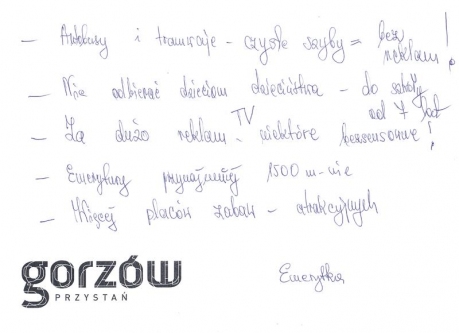 — Autobusy i tramwaje – czyste szyby = bez reklam!
— Nie odbierać dzieciom dzieciństwa – do szkoły od 7 lat
— Za dużo reklam TV – niektóre bezsensowne!
— Emerytury przynajmniej 1500 m-nie
— Więcej placów zabaw – atrakcyjnych
gorzów
PRZYSTAŃ
Emerytka